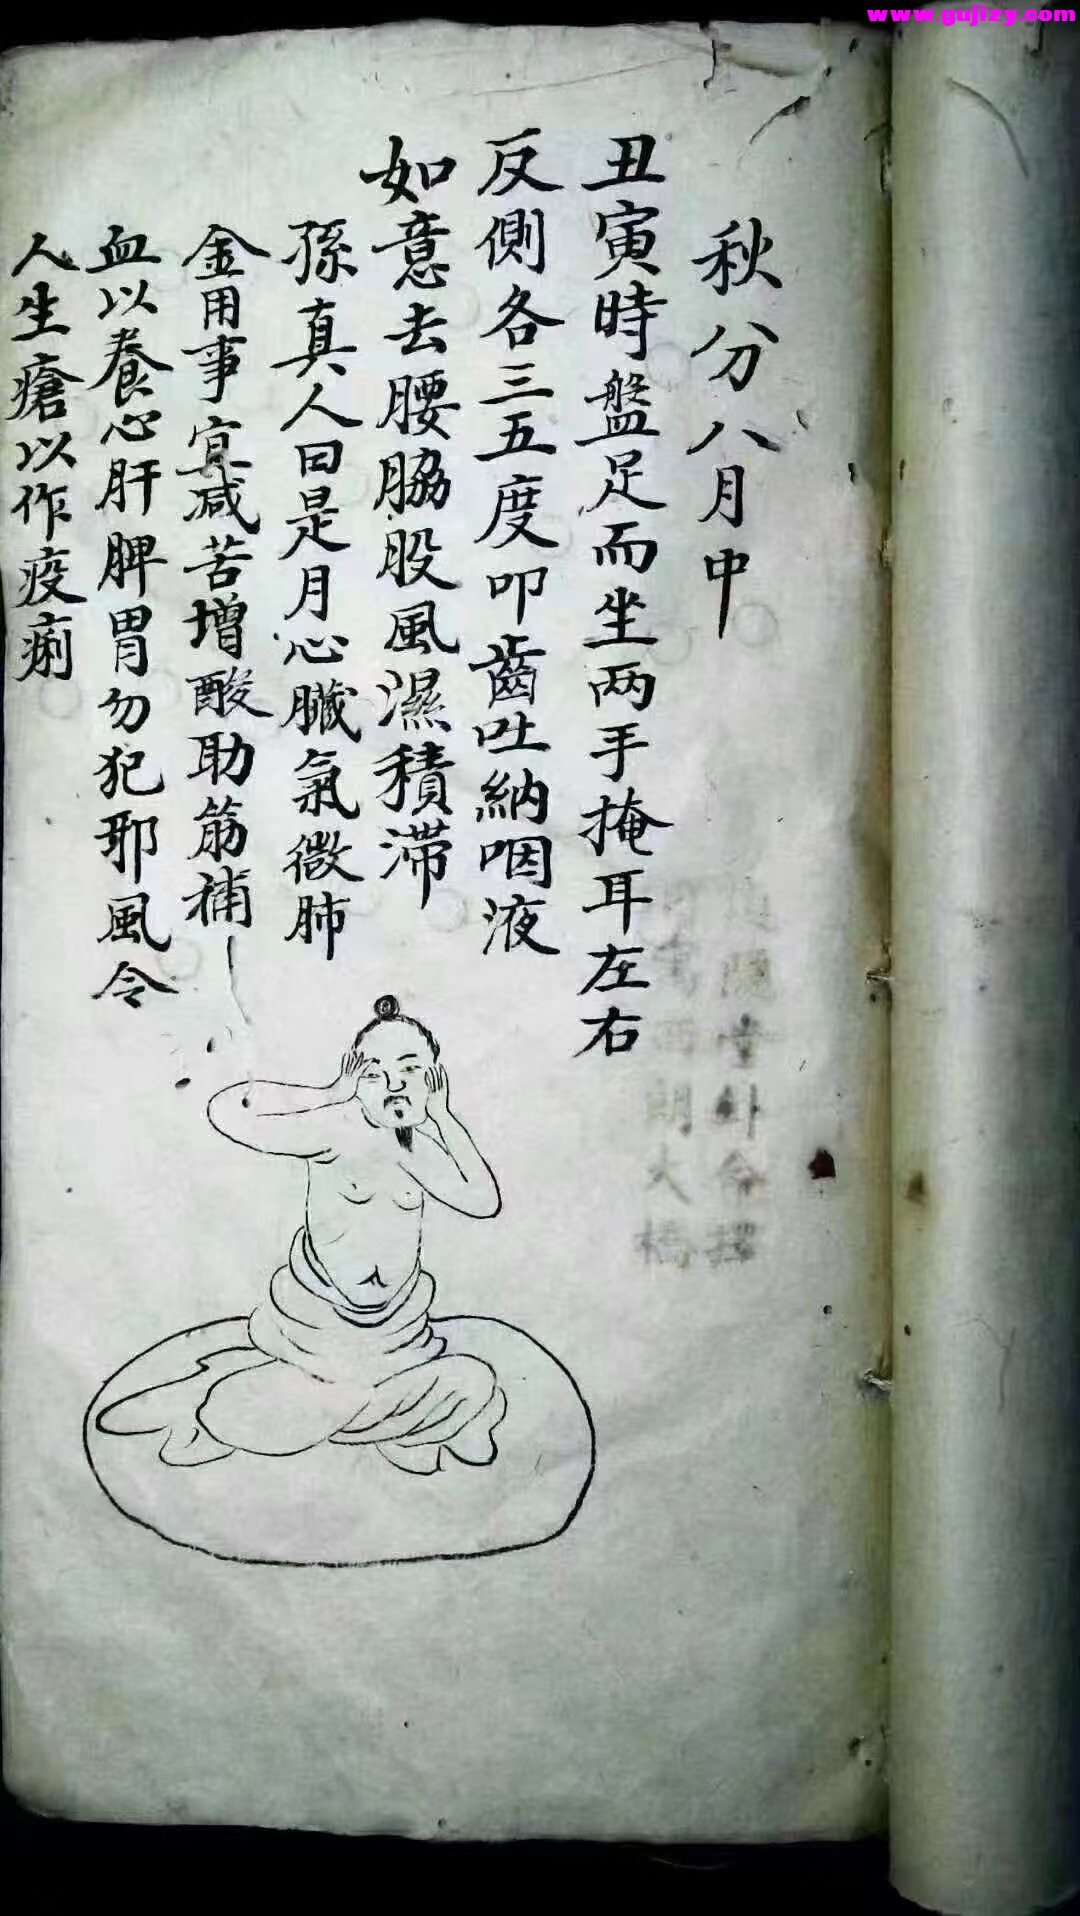 www.gujizy.com
秋分八月中
丑寅時盤足而坐两手掩耳左右
反側各三五度叩齒吐納咽液
如意去腰脇股風濕積滯
孫真人曰是月心臟氣微肺
金用事宜减苦增酸助筋補
血以養心肝脾胃勿犯耶風令
人生瘡以作疫痢